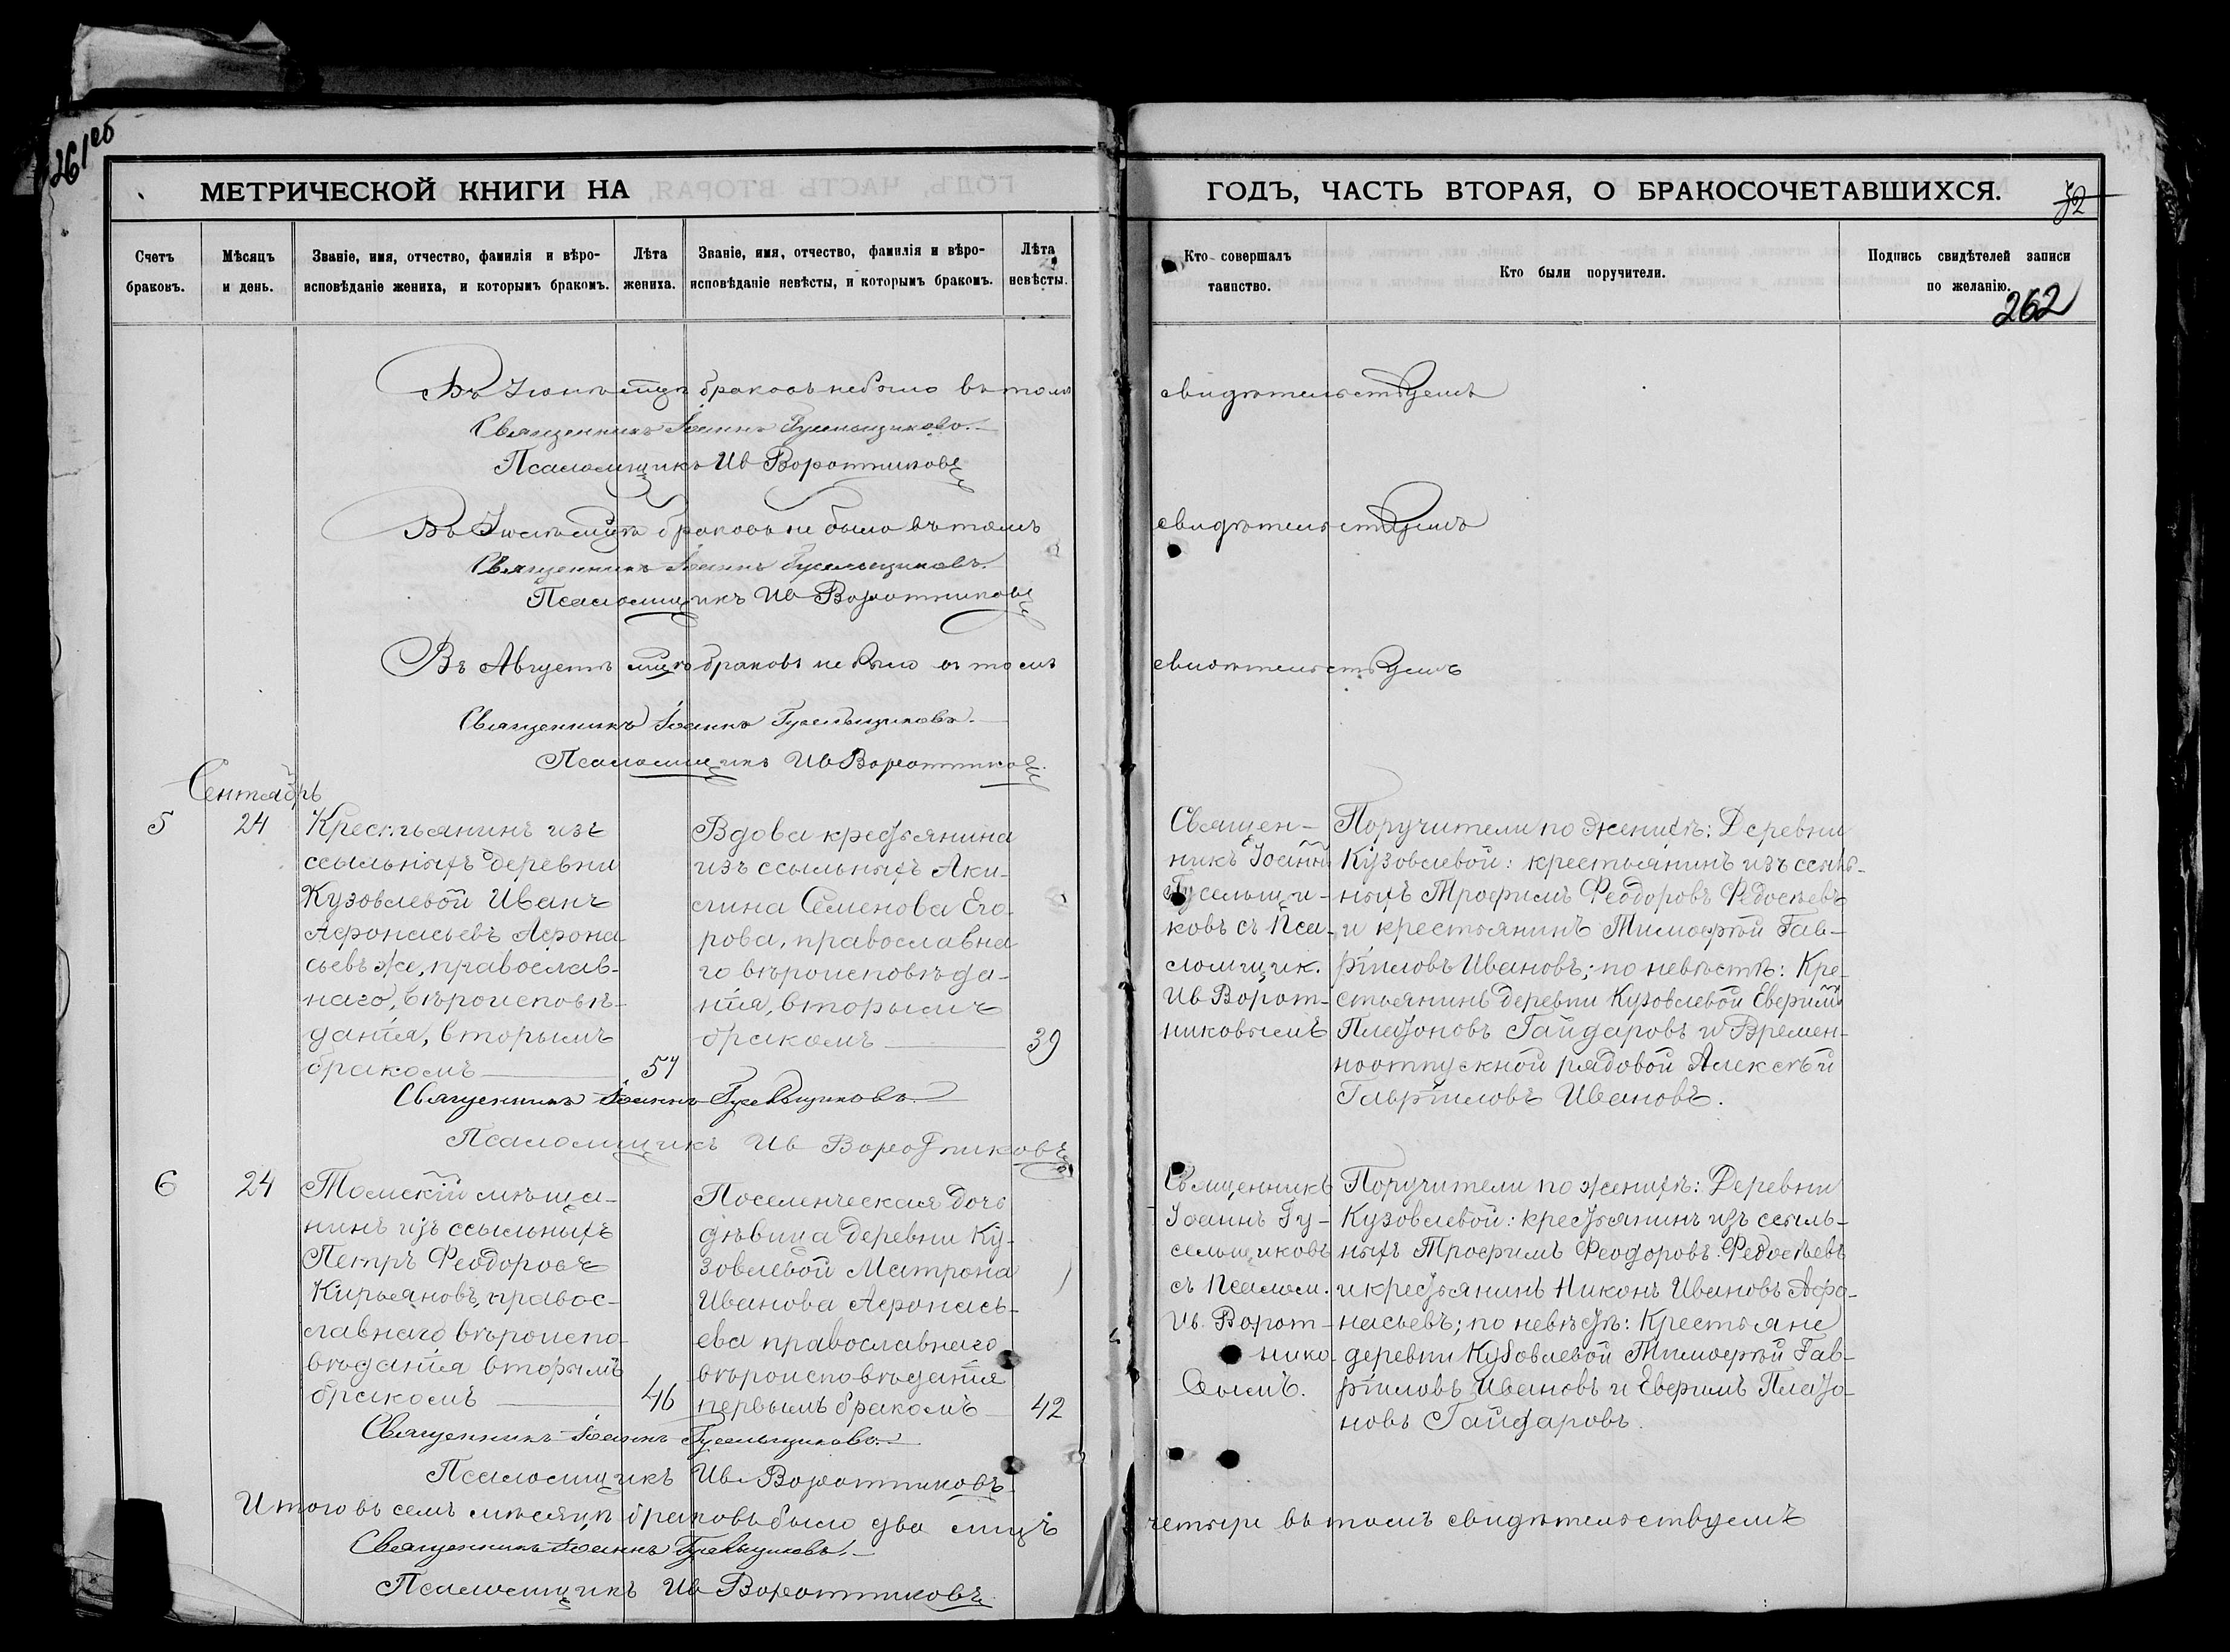 261об
МЕТРИЧЕСКОЙ КНИГИ НА
Счетъ браковъ.
Мѣсяцъ и день.
Званіе, имя, отчество, фамилія и вѣроисповѣданіе жениха, и которымъ бракомъ.
Лѣта жениха.
Званіе, имя, отчество, фамилія и вѣроисповѣданіе невѣсты, и которымъ бракомъ.
Лѣта невѣсты.
ГОДЪ, ЧАСТЬ ВТОРАЯ, О БРАКОСОЧЕТАВШИХСЯ.
Кто совершалъ таинство.
Кто были поручители.
Подпись свидѣтелей записи по желанію.
262
Въ Іюнѣ мцѣ браковъ не было въ томъ свидѣтельствуемъ
Священникъ Іоаннъ Гусельщиковъ.
Псаломщикъ Ив Воротниковъ
Въ Іюлѣ мцѣ браковъ не было въ томъ свидѣтельствуемъ
Священникъ Іоаннъ Гусельщиковъ.
Псаломщикъ Ив Воротниковъ
Въ Августѣ мцѣ браковъ не было въ томъ свидѣтельствуемъ
Священникъ Іоаннъ Гусельщиковъ.
Псаломщикъ Ив Воротниковъ
Сентябрь
5
24
Крестьянинъ изъ
ссыльныхъ деревни
Кузовлевой Иванъ
Афонасьевъ Афона-
сьевъ же, православ-
наго, вѣроисповѣ-
данія, вторымъ
бракомъ
57
Вдова крестьянина
изъ ссыльныхъ Аки-
лина Семенова Его-
рова, православна-
го вѣроисповѣда-
нія, вторымъ
бракомъ
39
Священ-
никъ Іоаннъ
Гусельщи-
ковъ съ Пса-
ломщик.
Ив Ворот-
никовымъ
Поручители по женихѣ: Деревни
Кузовлевой: крестьянинъ изъ ссыль-
ныхъ Трофимъ Феодоровъ Федосѣевъ
и крестьянинъ Тимофей Гав-
ріиловъ Ивановъ; по невѣстѣ: Кре-
стьянинъ деревни Кузовлевой Евфимій
Платоновъ Гайдаровъ и Времен-
ноотпускной рядовой Алексѣй
Гавріиловъ Ивановъ.
Священникъ Іоаннъ Гусельщиковъ.
Псаломщикъ Ив Воротниковъ
6
24
Томскій мѣща-
нинъ изъ ссыльныхъ
Петръ Феодоровъ
Кирьяновъ, правос-
лавнаго вѣроиспо-
вѣданія вторымъ
бракомъ
46
Поселенческая дочь
дѣвица деревни Ку-
зовлевой Матрона
Иванова Афонась-
ева православнаго
вѣроисповѣданія
первымъ бракомъ
42
Священникъ
Іоаннъ Гу-
сельщиковъ
съ Псалом.
Ив. Ворот-
нико-
вымъ.
Поручители по женихѣ: Деревни
Кузовлевой: крестьянинъ изъ ссыль-
ныхъ Трофимъ Феодоровъ Федосѣевъ
и крестьянинъ Никонъ Ивановъ Афо-
насьевъ; по невѣстѣ: Крестьяне
деревни Кузовлевой Тимофей Гав-
ріиловъ Ивановъ и Евфимъ Плато-
новъ Гайдаровъ.
Священникъ Іоаннъ Гусельщиковъ.
Псаломщикъ Ив Воротниковъ
Итого въ семъ мѣсяцѣ браковъ было два лицъ четыре въ томъ свидѣтельствуемъ
Священникъ Іоаннъ Гусельщиковъ.
Псаломщикъ Ив Воротниковъ